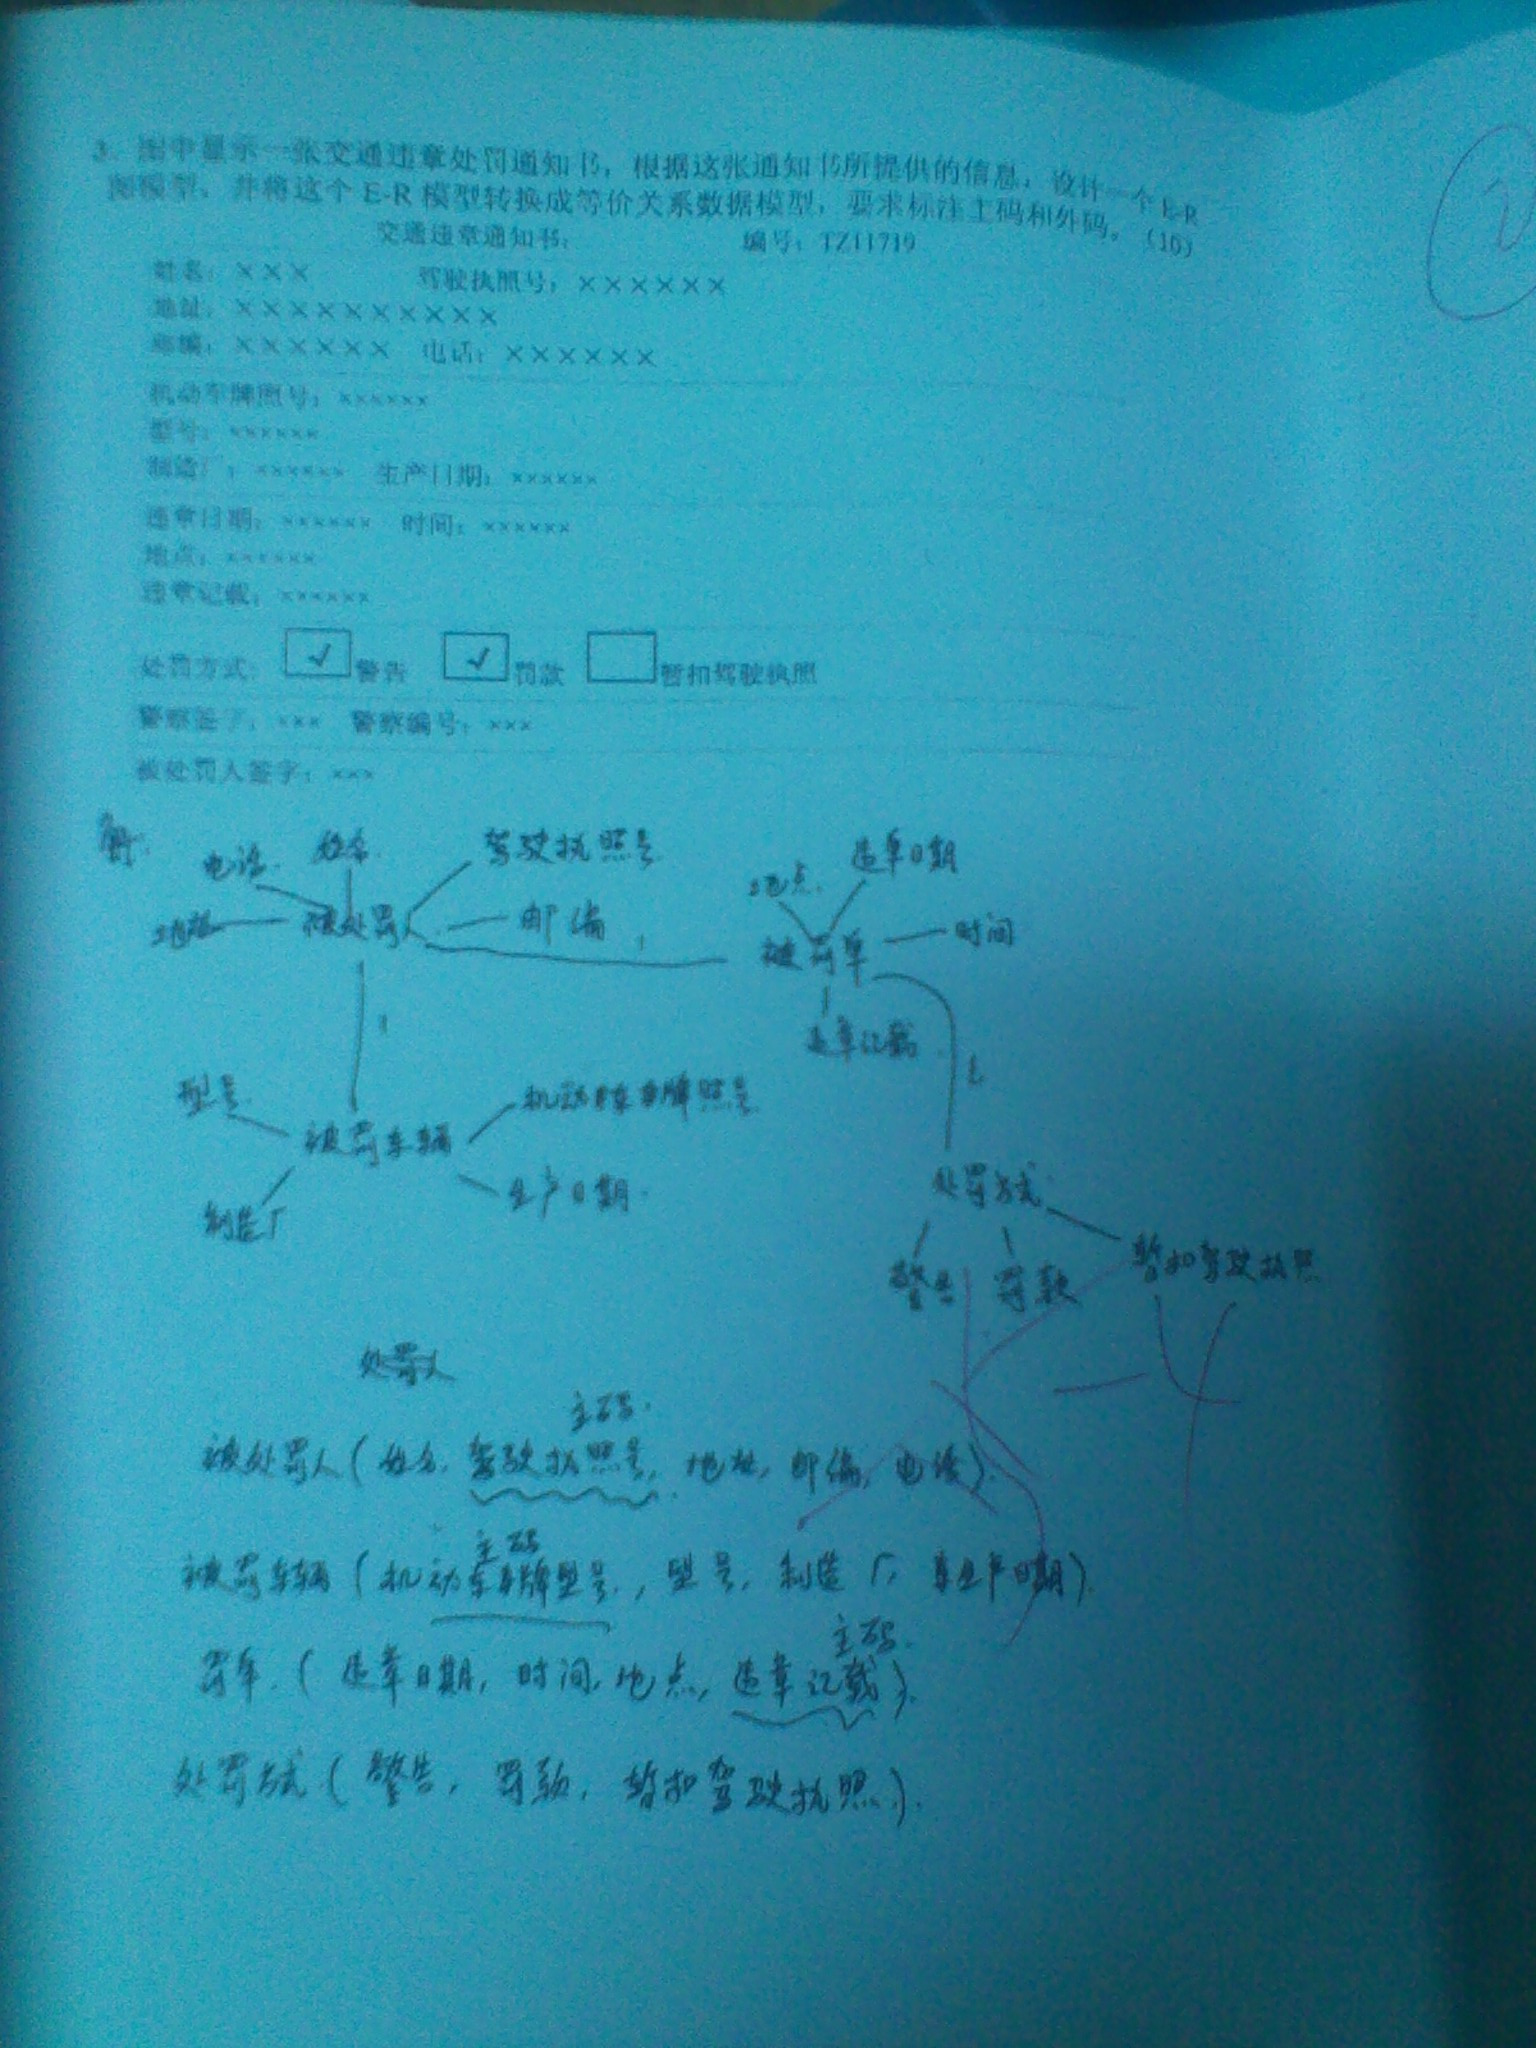 3. 图中显示一张交通违章处罚通知书，根据这张通知书所提供的信息，设计一个E-R
图模型，并将这个E-R模型转换成等价关系数据模型，要求标注主码和外码。（16）
交通违章通知书： 编号：TZ11719
姓名：××× 驾驶执照号：××××××
地址：××××××××××
邮编：×××××× 电话：××××××
机动车牌照号：××××××
型号：××××××
制造厂：×××××× 生产日期：××××××
违章日期：×××××× 时间：××××××
地点：××××××
违章记载：××××××
处罚方式： √ 警告 √ 罚款 暂扣驾驶执照
警察签字：××× 警察编号：×××
被处罚人签字：×××
解:
电话 姓名 驾驶执照号
地址 被处罚人 邮编 1
地点 违章日期
被罚单 时间
违章记载
1
1
型号 机动车车牌照号
被罚车辆
制造厂 生产日期
处罚方式
警告 罚款 暂扣驾驶执照
-4
处罚人
主码
被处罚人(姓名, 驾驶执照号, 地址, 邮编, 电话).
主码
被罚车辆(机动车车牌型号, 型号, 制造厂, 生产日期).
主码
罚单.(违章日期, 时间, 地点, 违章记载).
处罚方式(警告, 罚款, 暂扣驾驶执照).